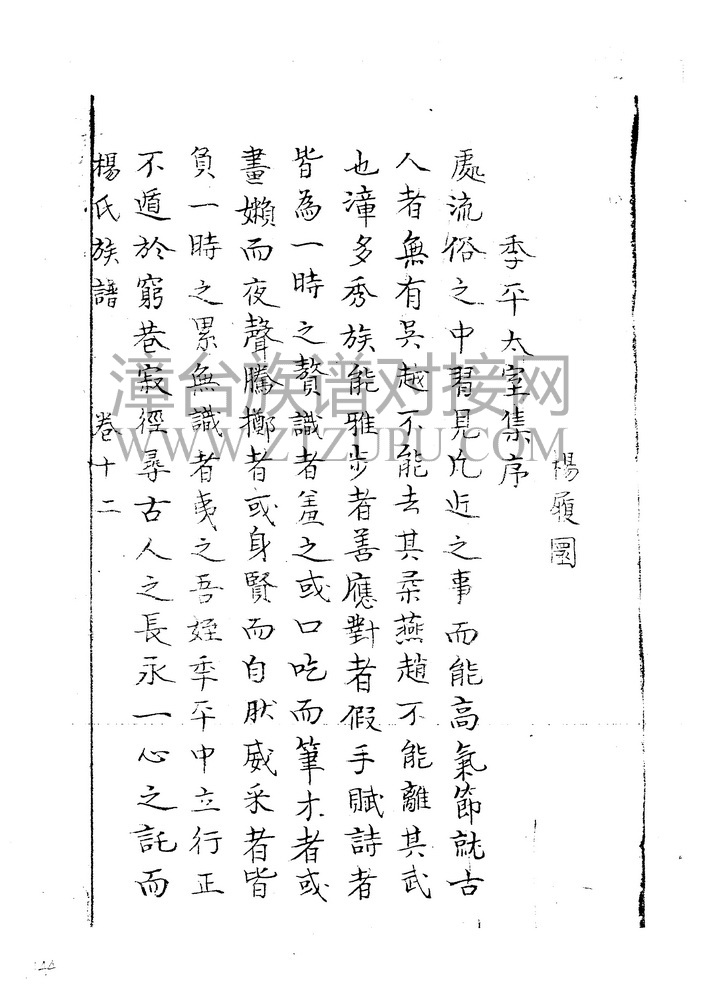 楊履圜
季平太室集序
處流俗之中習見凡近之事而能高氣節就古
人者無有吳越不能去其柔燕趙不能離其武
也漳多秀族能雅步者善應對者假手賦詩者
皆為一時之贅識者羞之或口吃而筆才者或
晝嬾而夜聲騰擲者或身賢而自肰威采者皆
負一時之累無識者夷之吾姪季平中立行正
不遁於窮巷寂徑尋古人之長永一心之託而
楊氏族譜 卷十二
漳台族谱对接网
WWW.ZTZUPU.COM